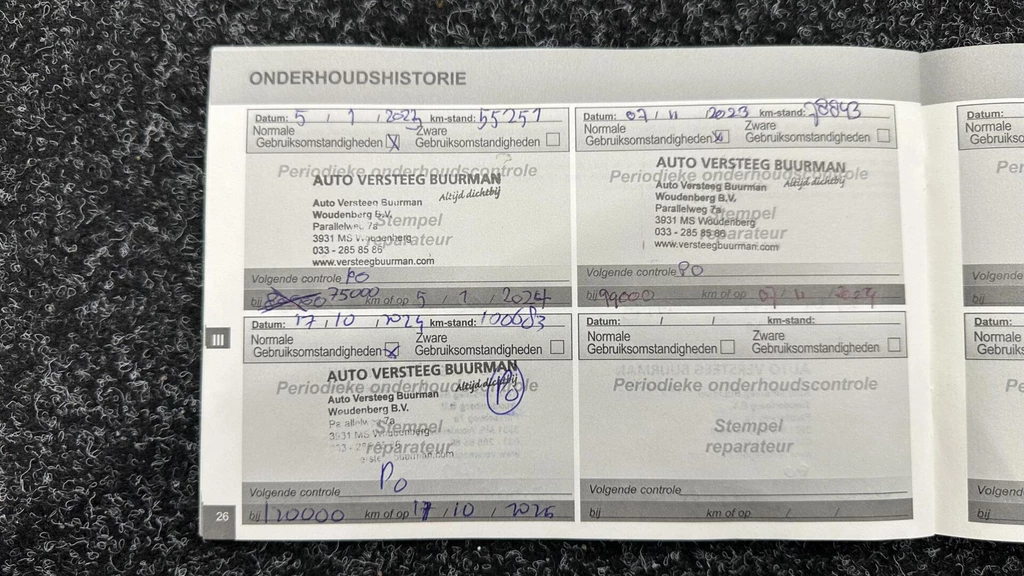 ONDERHOUDSHISTORIE
Datum: 5 / 1 / 2023 km-stand: 55251
Normale Zware
Gebruiksomstandigheden X Gebruiksomstandigheden
Periodieke onderhoudscontrole
AUTO VERSTEEG BUURMAN
Altijd dichtbij
Auto Versteeg Buurman
Woudenberg B.V.
Parallelweg 7a
Stempel
3931 MS Woudenberg
reparateur
033 - 285 85 86
www.versteegbuurman.com
Volgende controle PO
bij 75000 km of op 5 / 1 / 2024
Datum: 07 / 11 / 2023 km-stand: 78843
Normale Zware
Gebruiksomstandigheden X Gebruiksomstandigheden
Periodieke onderhoudscontrole
AUTO VERSTEEG BUURMAN
Altijd dichtbij
Auto Versteeg Buurman
Woudenberg B.V.
Parallelweg 7a
Stempel
3931 MS Woudenberg
033 - 285 85 86
reparateur
www.versteegbuurman.com
Volgende controle PO
bij 99000 km of op 07 / 11 / 2024
III
Datum: 17 / 10 / 2024 km-stand: 100683
Normale Zware
Gebruiksomstandigheden X Gebruiksomstandigheden
AUTO VERSTEEG BUURMAN
Altijd dichtbij
Periodieke onderhoudscontrole
PO
Auto Versteeg Buurman
Woudenberg B.V.
Stempel
3931 MS Woudenberg
reparateur
PO
Volgende controle
bij 120000 km of op 17 / 10 / 2025
Datum: / / km-stand:
Normale Zware
Gebruiksomstandigheden Gebruiksomstandigheden
Periodieke onderhoudscontrole
Stempel
reparateur
Volgende controle
bij km of op / /
26
Datum:
Normale
Volgende
bij
Datum:
Normale
bij